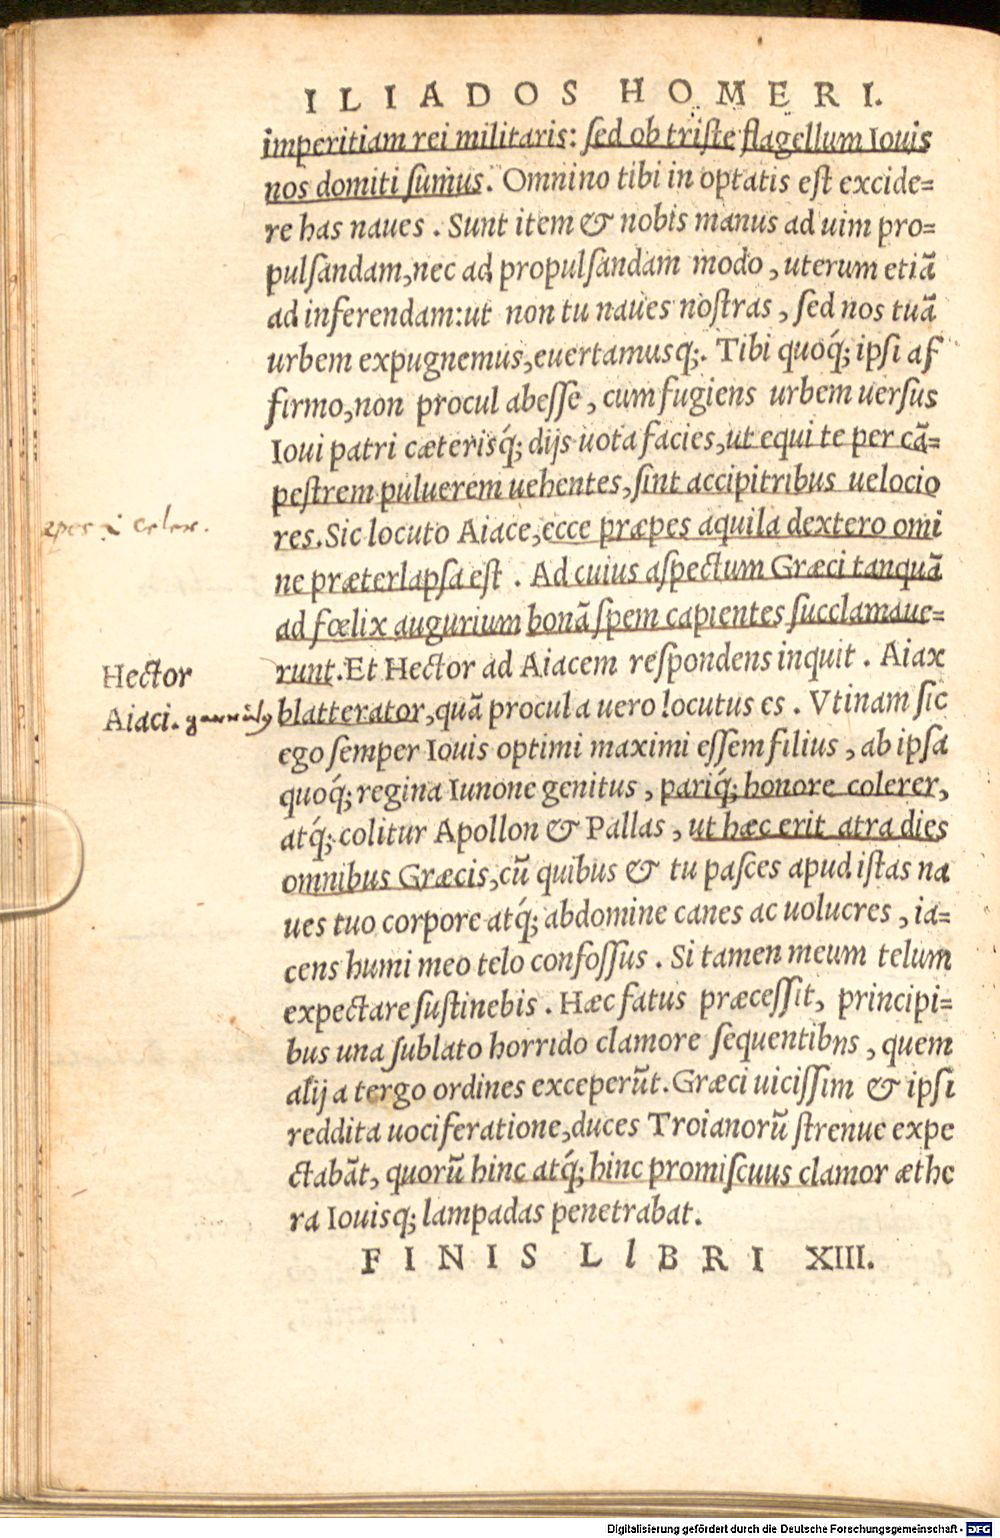 ILIADOS HOMERI.
imperitiam rei militaris: sed ob triste flagellum Iouis
nos domiti sumus. Omnino tibi in optatis est excide=
re has naues. Sunt item & nobis manus ad uim pro=
pulsandam, nec ad propulsandam modo, uterum etiā
ad inferendam: ut non tu naues nostras, sed nos tuā
urbem expugnemus, euertamusq́;. Tibi quoq́; ipsi af
firmo, non procul abesse, cum fugiens urbem uersus
Ioui patri cæterisq́; dijs uota facies, ut equi te per cā=
pestrem puluerem uehentes, sint accipitribus uelocio
præpes i celer.
res. Sic locuto Aiace, ecce præpes aquila dextero omi
ne præterlapsa est. Ad cuius aspectum Græci tanquā
ad fœlix augurium bonā spem capientes succlamaue=
Hector
runt. Et Hector ad Aiacem respondens inquit. Aiax
Aiaci.
blatterator, quā procul a uero locutus es. Vtinam sic
ego semper Iouis optimi maximi essem filius, ab ipsa
quoq́; regina Iunone genitus, pariq́; honore colerer,
atq́; colitur Apollon & Pallas, ut hæc erit atra dies
omnibus Græcis, cū quibus & tu pasces apud istas na
ues tuo corpore atq́; abdomine canes ac uolucres, ia=
cens humi meo telo confossus. Si tamen meum telum
expectare sustinebis. Hæc fatus præcessit, principi=
bus una sublato horrido clamore sequentibns, quem
alij a tergo ordines exceperūt. Græci uicissim & ipsi
reddita uociferatione, duces Troianorū strenue expe
ctabāt, quorū hinc atq́; hinc promiscuus clamor æthe
ra Iouisq; lampadas penetrabat.
FINIS LIBRI XIII.
Digitalisierung gefördert durch die Deutsche Forschungsgemeinschaft - DFG